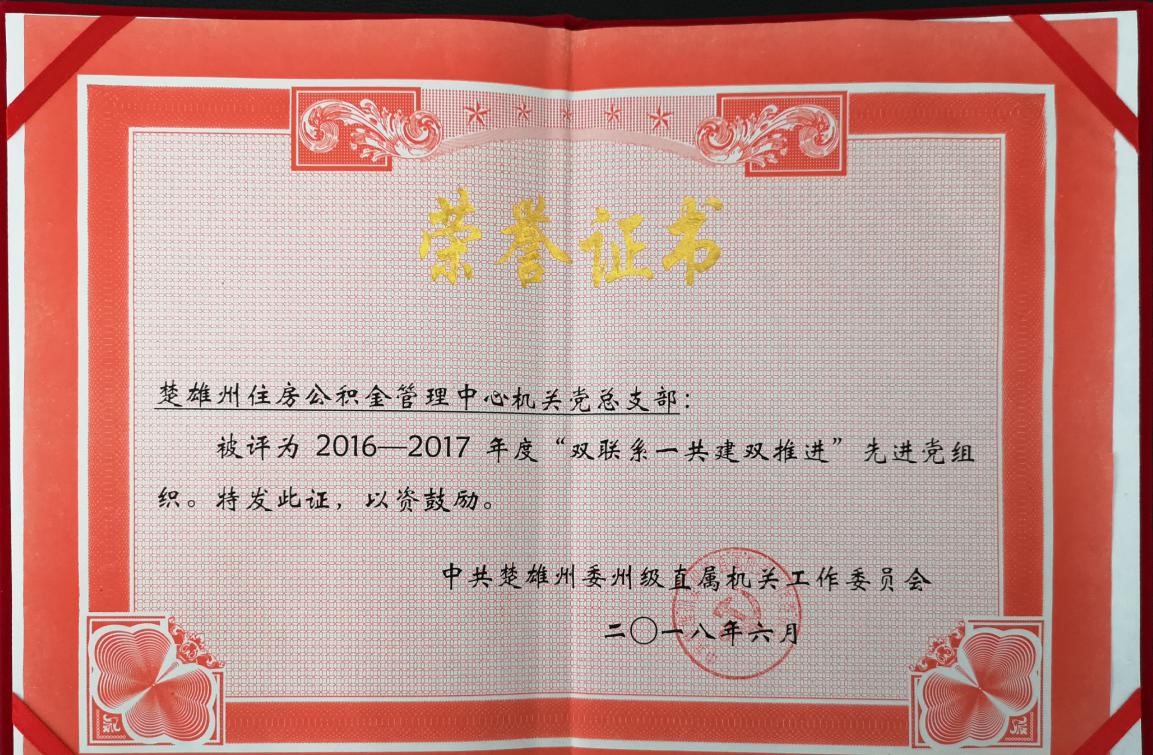 荣誉证书
楚雄州住房公积金管理中心机关党总支部：
被评为 2016—2017 年度“双联系一共建双推进”先进党组
织。特发此证，以资鼓励。
中共楚雄州委州级直属机关工作委员会
二〇一八年六月